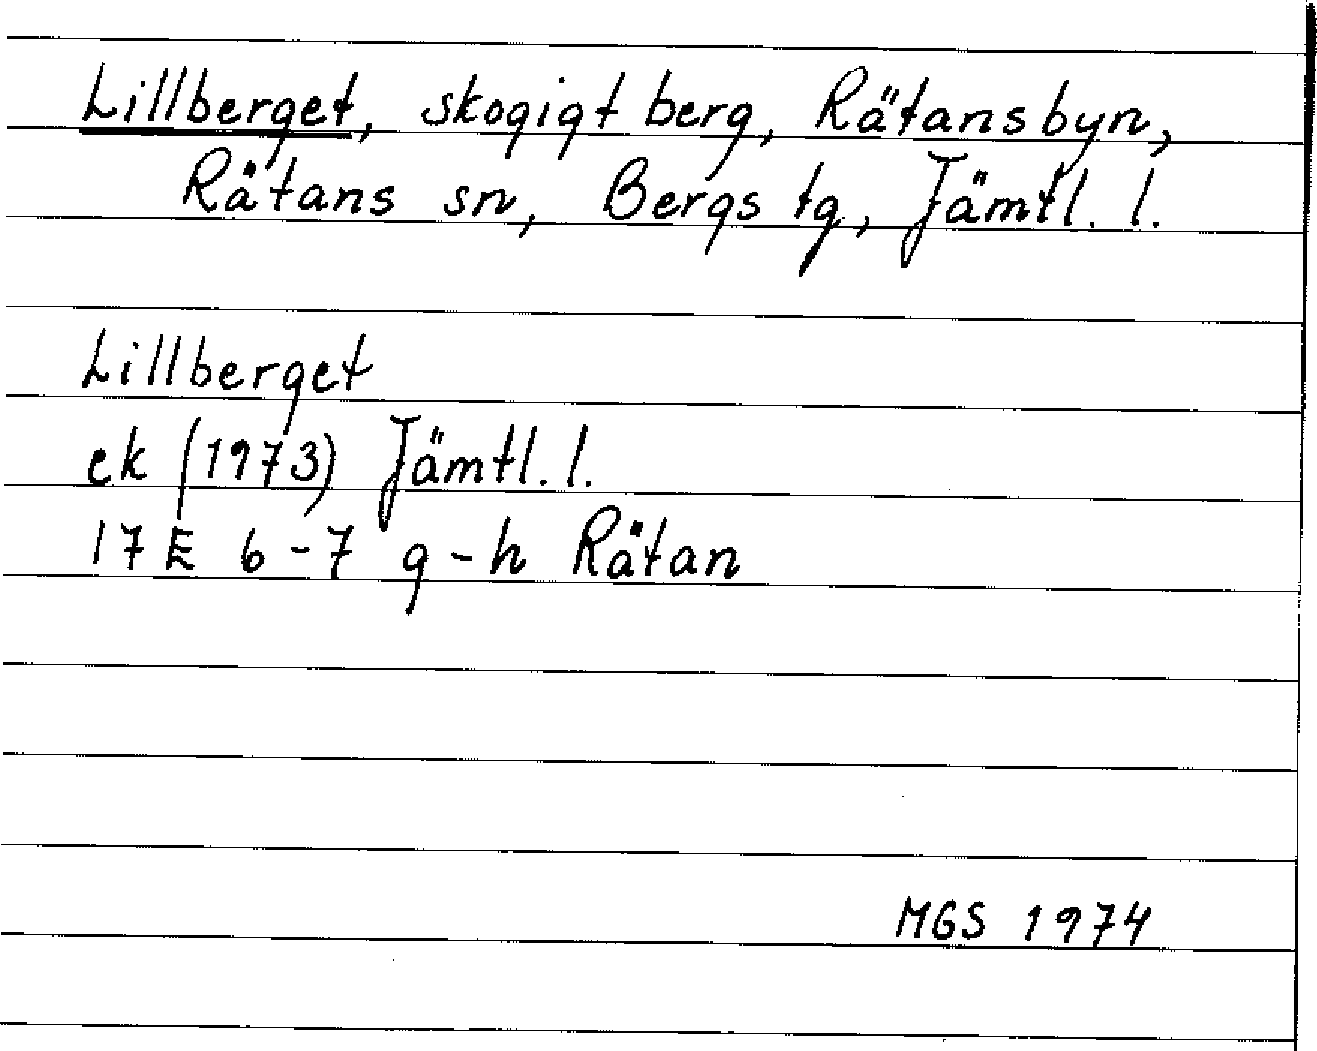 Lillberget, skogigt berg, Rätansbyn,
Rätans sn, Bergs tg, Jämtl. l.
Lillberget
ek (1973) Jämtl. l.
17E 6-7 g-h Rätan
MGS 1974